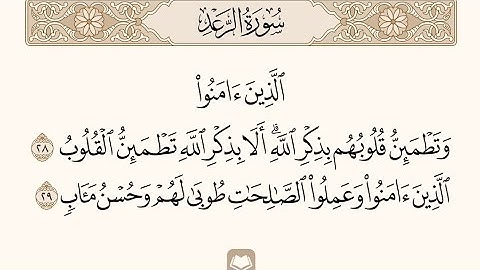 سُورَةُ الرَّعْدِ
ٱلَّذِينَ ءَامَنُوا۟
وَتَطْمَئِنُّ قُلُوبُهُم بِذِكْرِ ٱللَّهِ ۗ أَلَا بِذِكْرِ ٱللَّهِ تَطْمَئِنُّ ٱلْقُلُوبُ ٢٨
ٱلَّذِينَ ءَامَنُوا۟ وَعَمِلُوا۟ ٱلصَّـٰلِحَـٰتِ طُوبَىٰ لَهُمْ وَحُسْنُ مَـَٔابٍ ٢٩